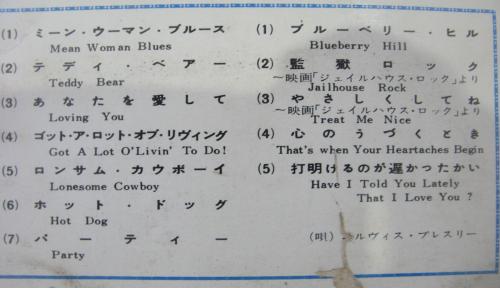 (1) ミーン・ウーマン・ブルース
Mean Woman Blues
(2) テディ・ベアー
Teddy Bear
(3) あなたを愛して
Loving You
(4) ゴット・ア・ロット・オブ・リヴィング
Got A Lot O'Livin' To Do!
(5) ロンサム・カウボーイ
Lonesome Cowboy
(6) ホット・ドッグ
Hot Dog
(7) パーティー
Party
(1) ブルーベリー・ヒル
Blueberry Hill
(2) 監獄ロック
〜映画「ジェイルハウス・ロック」より
Jailhouse Rock
(3) やさしくしてね
〜映画「ジェイルハウス・ロック」より
Treat Me Nice
(4) 心のうづくとき
That's when Your Heartaches Begin
(5) 打明けるのが遅かったかい
Have I Told You Lately
That I Love You ?
(唄) エルヴィス・プレスリー